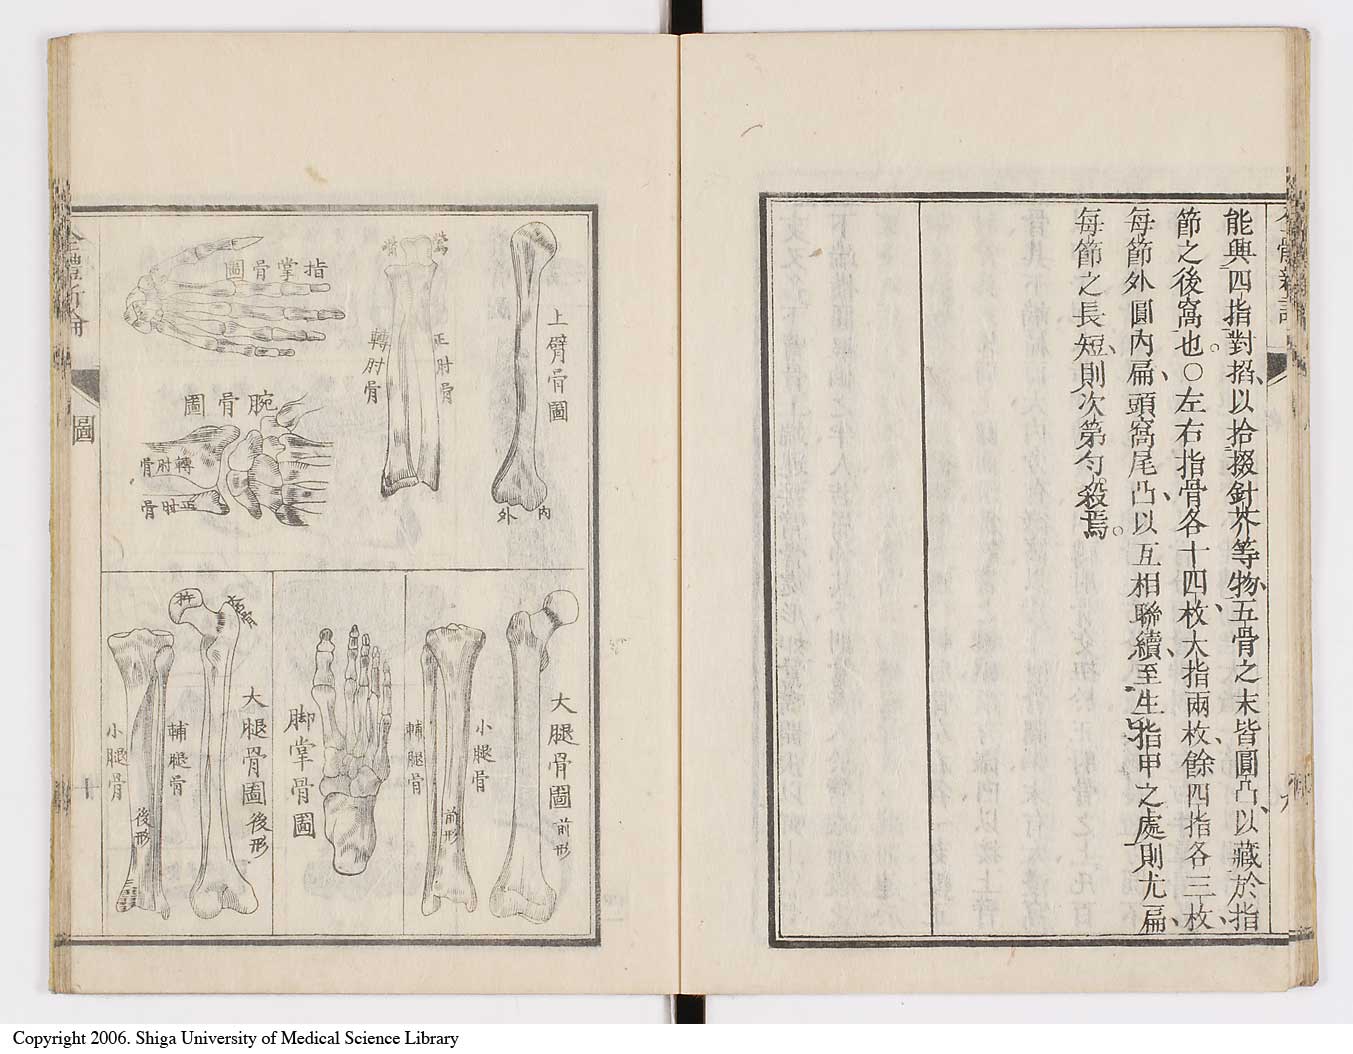 能與四指對搯、以拾掇針芥等物、五骨之末皆圓凸、以藏於指
節之後窩也。○左右指骨各十四枚、大指兩枚、餘四指各三枚、
每節外圓內扁、頭窩尾凸、以互相聯續、至生指甲之處、則尤扁、
每節之長短、則次第勻殺焉。
全體新論
圖
十
上臂骨圖
內
外
正肘骨
轉肘骨
指掌骨圖
腕骨圖
轉肘骨
正肘骨
大腿骨圖 前形
小腿骨
輔腿骨
前形
脚掌骨圖
大腿骨圖 後形
輔腿骨
小腿骨
後形
Copyright 2006. Shiga University of Medical Science Library